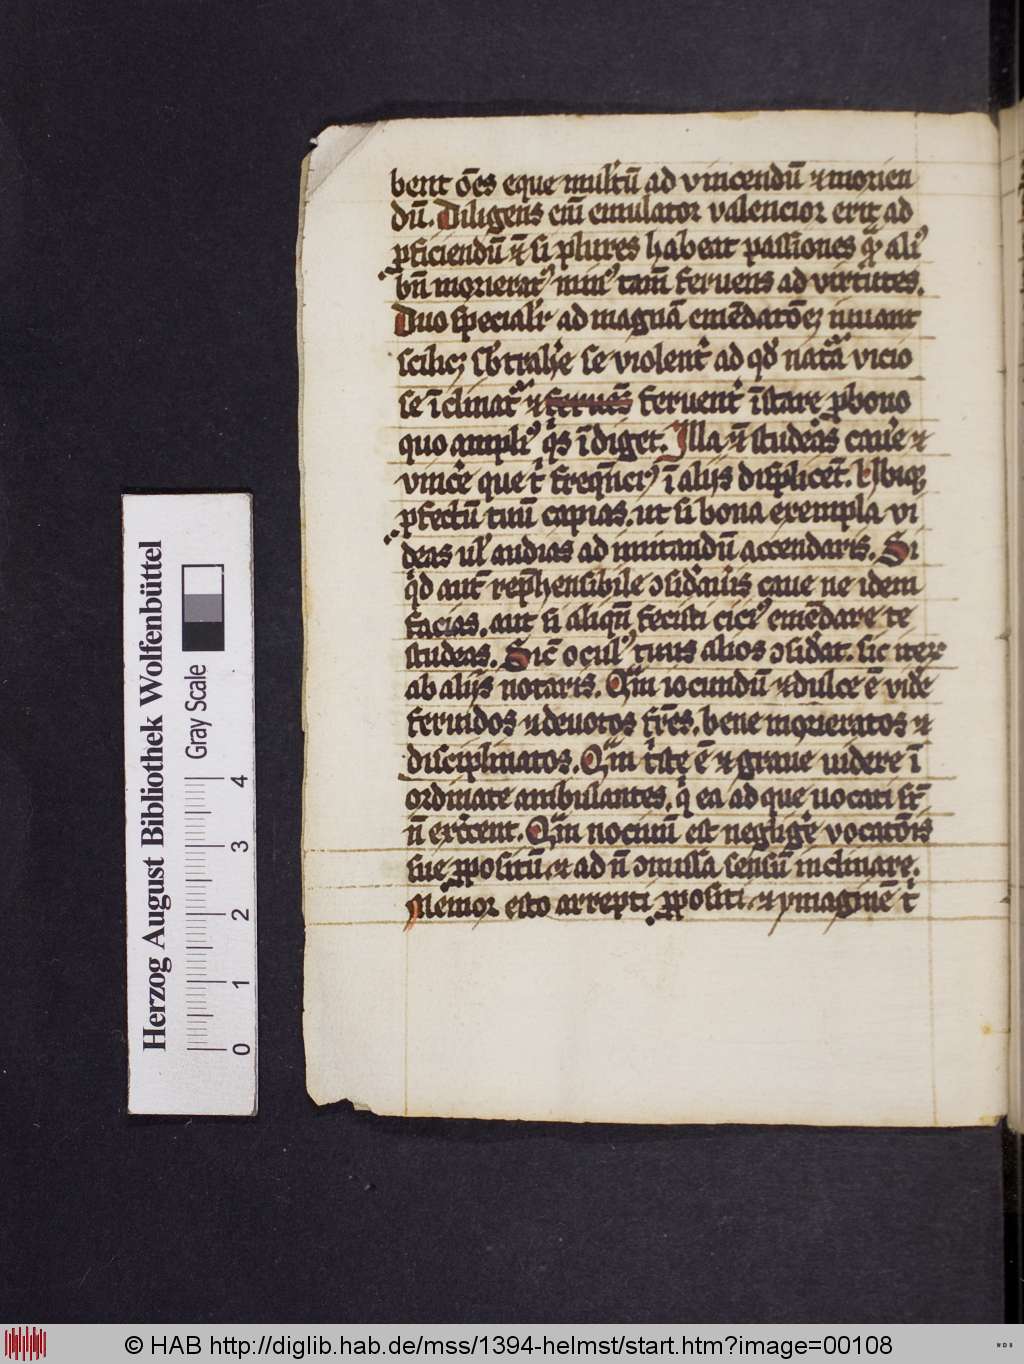 bent o̅es eque multu̅ ad vincendu̅ ⁊ morien
du̅. Diligens eni̅ emulator valencior erit ad
ꝓficiendu̅ eciā si plures habeat passiones qͣꝫ aliꝰ
bn̅ morieratꝰ minꝰ tam̅ feruens ad virtutes.
Duo specialiꝰ ad magna̅ eme̅dato̅eꝫ iuuant
scilicꝫ sb̓trah̓e se violent̓ ad qd̓ natͣa vicio
se i̅clinatͣ ⁊ feruēs feruent̓ i̅stare ꝓ bono
quo ampliꝰ qͥs i̅diget. Illa eciā studeas cau̓e ⁊
vinc̓e que t̓ freqn̅ciꝰ i̅ alijs displicēt. Vbiqꝫ
ꝓfectu̅ tuu̅ capias. ut si bona exempla vi
deas ul̓ audias ad imitandu̅ accendaris. Si
qͥd aut̅ rep̅hensibile ↄsid̓au̓is caue ne idem
facias. aut si aliqn̅ fecisti ciciꝰ eme̅dare te
studeas. Sic̅ oculꝰ tuus alios ↄsid̓at. sic iteꝝ
ab alijs notaris. Qͣm iocundu̅ ⁊ dulce e̅ vid̓e
feruidos ⁊ deuotos fr̅es. bene morieratos ⁊
disciplinatos. Qͣm tͥste e̅ ⁊ graue uidere i̅
ordinate ambulantes. qͥ ea ad que uocati st̅
n̅ ex̓cent. Qͣm nociuu̅ est neglig̓e vocato̅is
sue ꝓpositu̅. ⁊ ad n̅ ↄmissa sensu̅ inclinare.
Memor esto arrepti ꝓpositi. ⁊ ymagine̅ t̓
Herzog August Bibliothek Wolfenbüttel
Gray Scale
0 1 2 3 4
© HAB http://diglib.hab.de/mss/1394-helmst/start.htm?image=00108